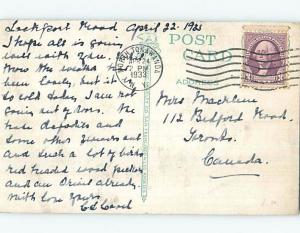 Lockport Road April 22 - 1933
I hope all is going
well with you.
Now the weather has
been lovely but it is
so cold today, I am not
going out of doors. We
have
and some other flowers out
and such a lot of birds
red headed wood pecker
and an Oriol already.
With love yours
POST CARD
ADDRESS
NORTH TONAWANDA
APR 24
1933
N.Y.
Mrs
112 Bedford Road
Toronto.
Canada.